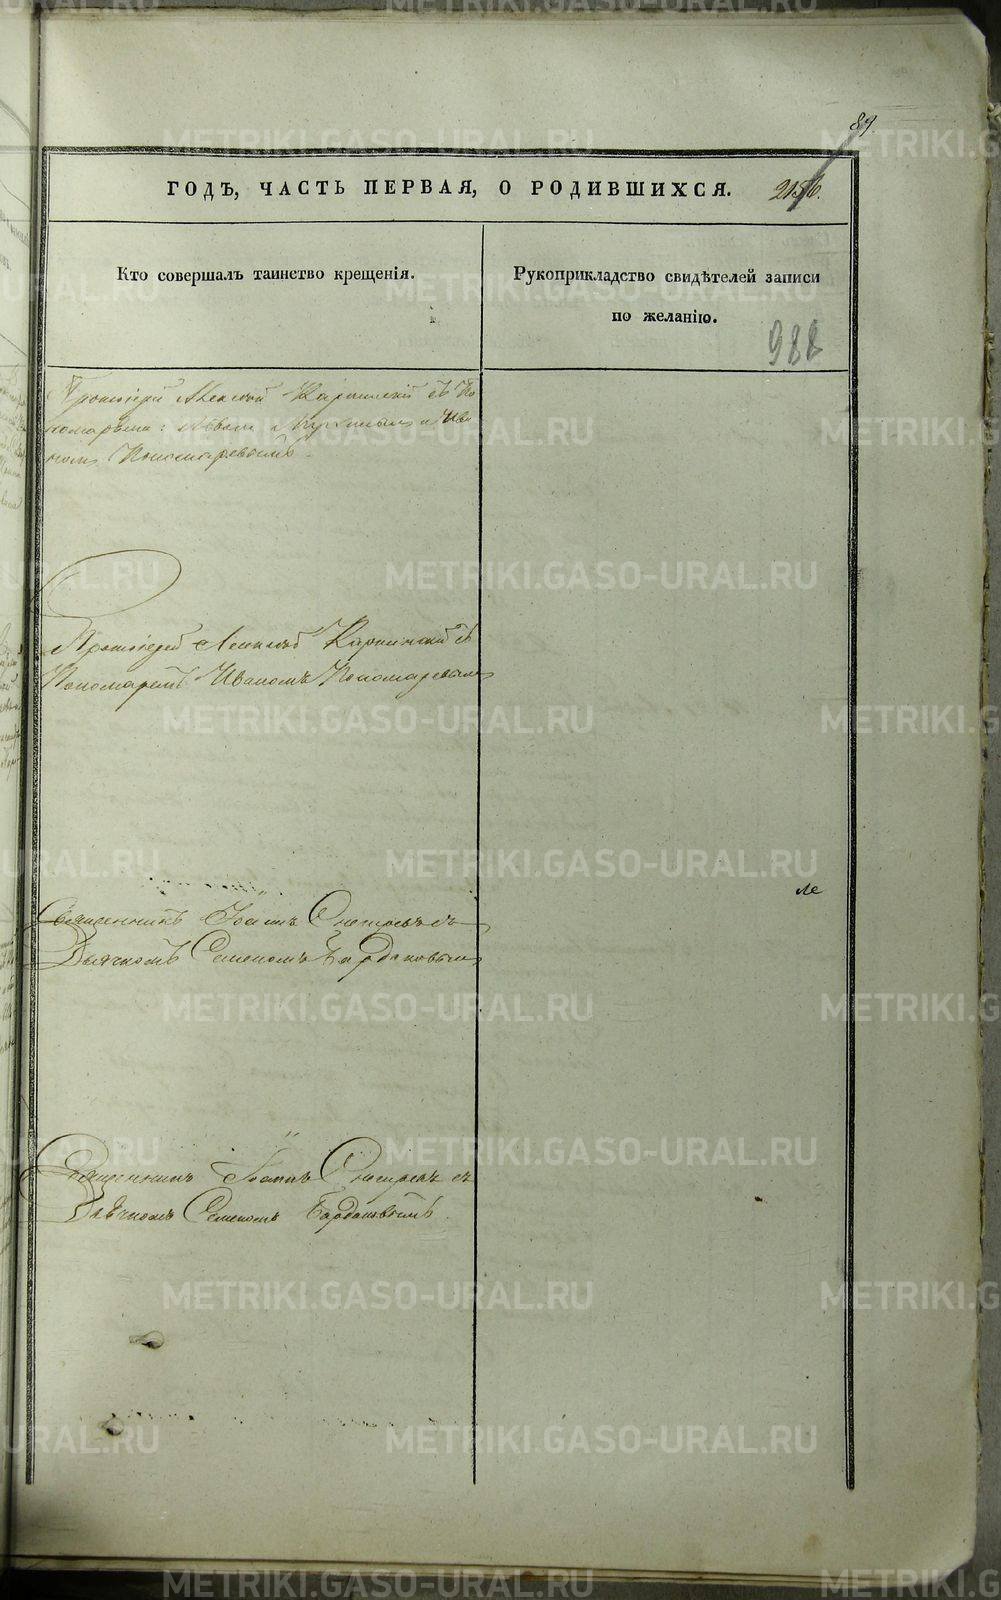 89.
ГОДЪ, ЧАСТЬ ПЕРВАЯ, О РОДИВШИХСЯ. 2156.
Кто совершалъ таинство крещенія.
Рукоприкладство свидѣтелей записи
по желанію.
988
Протоіерей Алексѣй Карпинскій съ По
номарями: и Ива
номъ Пономаревымъ
Протоіерей Алексѣй Карпинскій съ
Пономаремъ Иваномъ Пономаревымъ
Священникъ Іоаннъ Снегиревъ съ
Дьячкомъ Семеномъ Бардаковымъ
Священникъ Іоаннъ Снегиревъ съ
Дьячкомъ Семеномъ Бардаковымъ.
METRIKI.GASO-URAL.RU